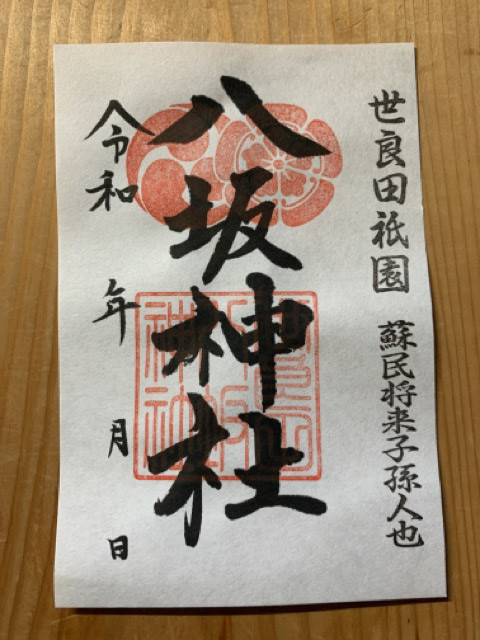 世良田祇園 蘇民将来子孫人也
八坂神社
令和 年 月 日